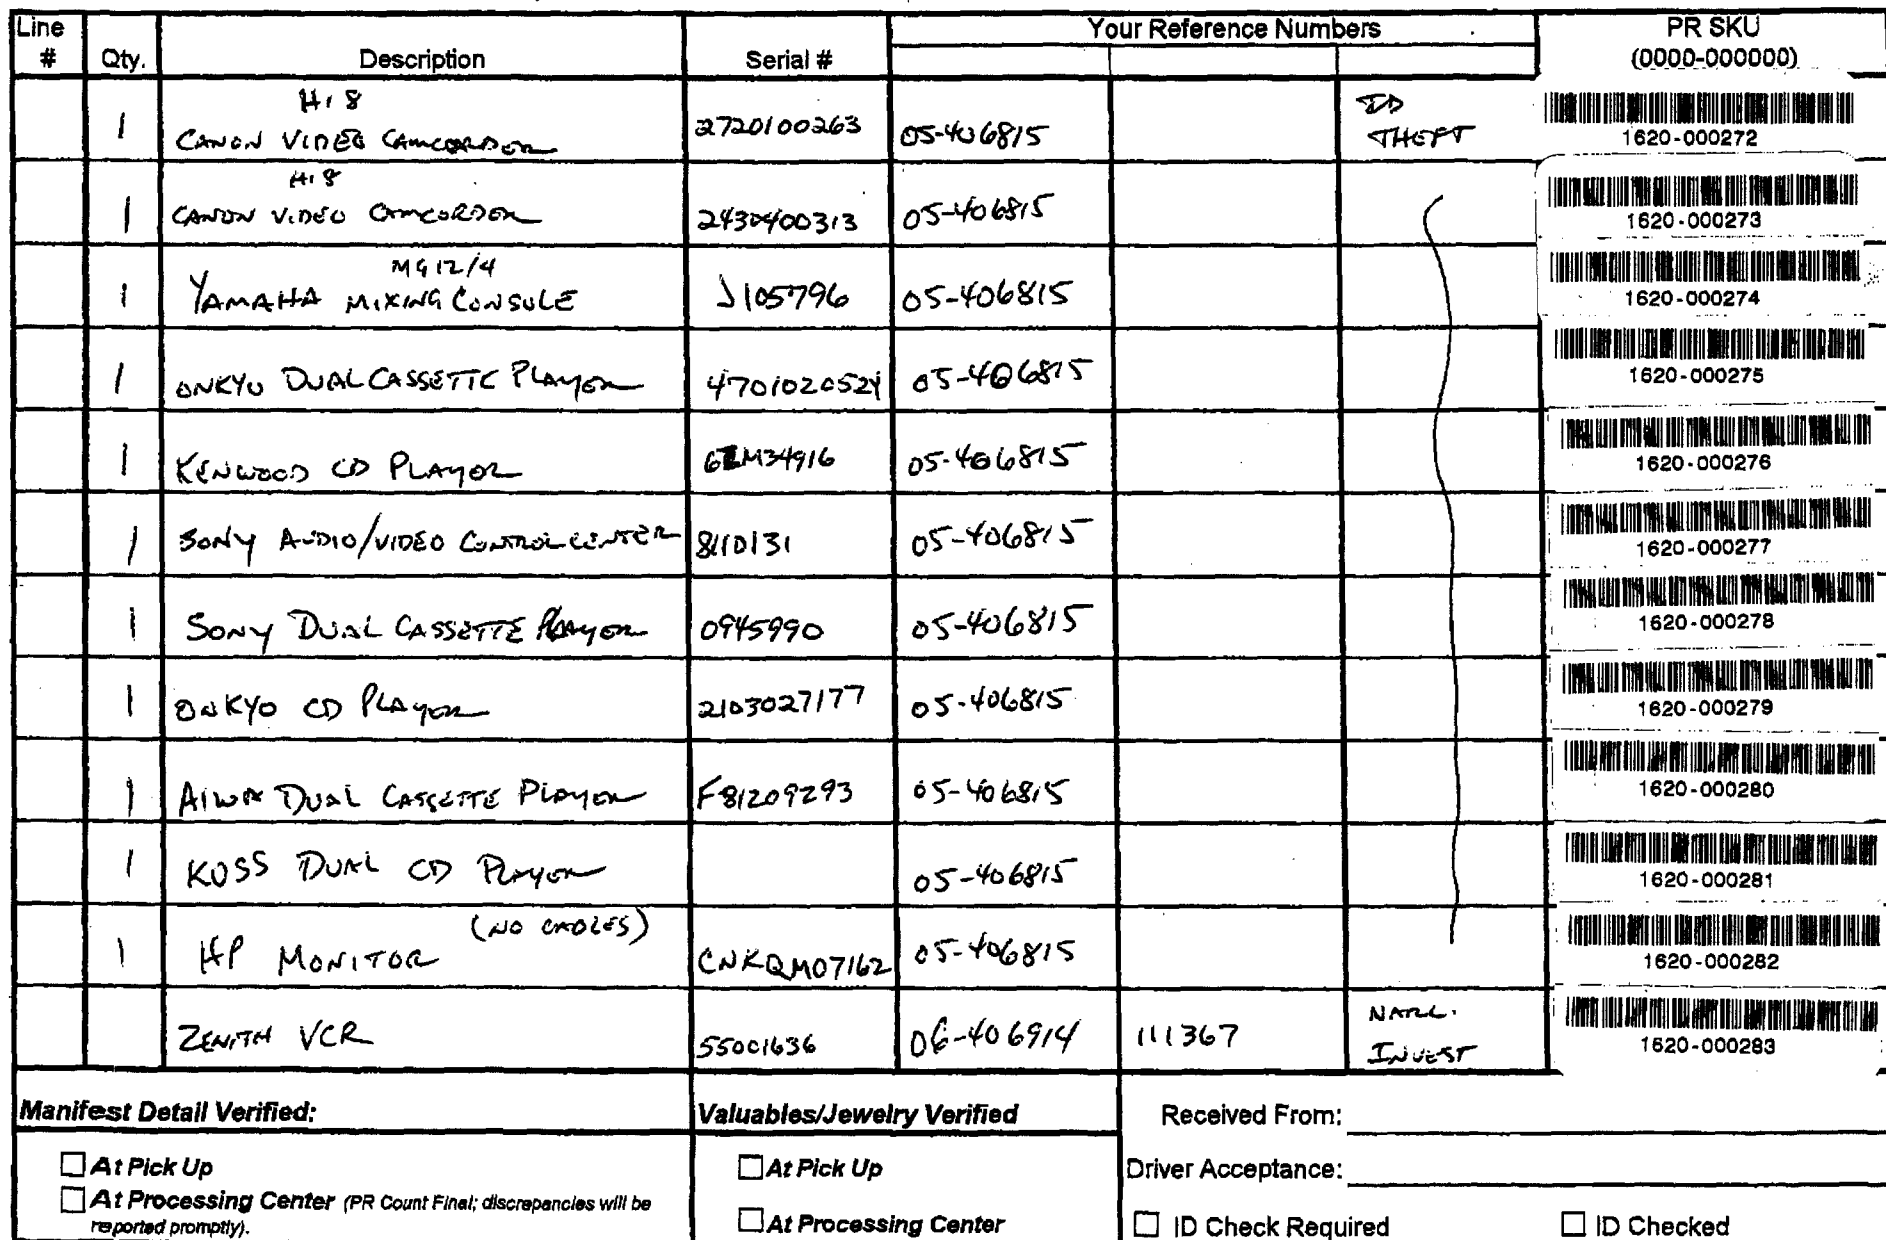 Line # Qty. Description Serial # Your Reference Numbers PR SKU (0000-000000)
Hi 8
1 CANON VIDEO CAMCORDER 2720100263 05-406815 ID THEFT 1620-000272
Hi 8
1 CANON VIDEO CAMCORDER 2430400313 05-406815 1620-000273
MG12/4
1 YAMAHA MIXING CONSULE J105796 05-406815 1620-000274
1 ONKYO DUAL CASSETTE PLAYER 4701020524 05-406815 1620-000275
1 KENWOOD CD PLAYER 05-406815 1620-000276
1 SONY AUDIO/VIDEO CONTROL CENTER 8110131 05-406815 1620-000277
1 SONY DUAL CASSETTE PLAYER 0945990 05-406815 1620-000278
1 ONKYO CD PLAYER 2103027177 05-406815 1620-000279
1 AIWA DUAL CASSETTE PLAYER F81209293 05-406815 1620-000280
1 KOSS DUAL CD PLAYER 05-406815 1620-000281
(NO CABLES)
1 HP MONITOR CNKQM07162 05-406815 1620-000282
ZENITH VCR 55001636 06-406914 111367 NARC. INVEST 1620-000283
Manifest Detail Verified: Valuables/Jewelry Verified Received From:
At Pick Up At Pick Up Driver Acceptance:
At Processing Center (PR Count Final; discrepancies will be
reported promptly). At Processing Center ID Check Required ID Checked